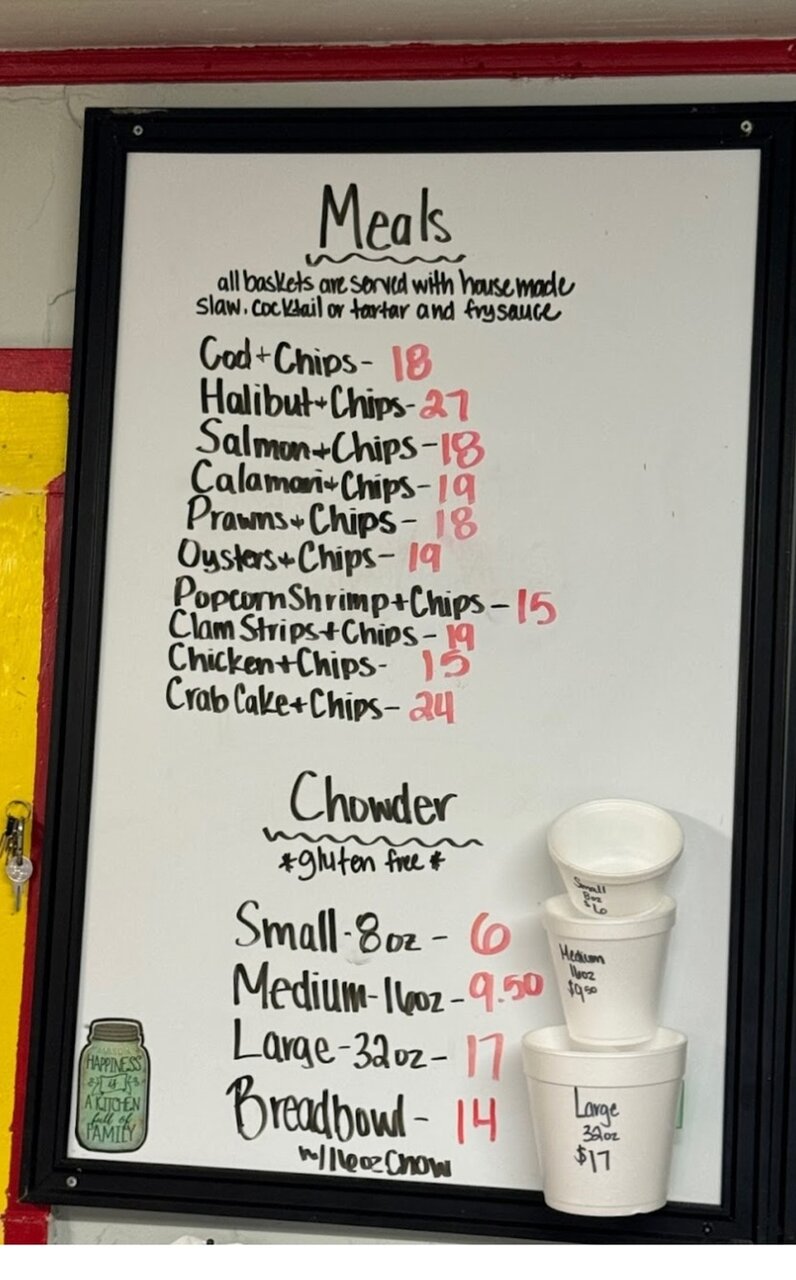 Meals
all baskets are served with housemade
slaw, cocktail or tartar and frysauce
Cod + Chips - 18
Halibut + Chips - 27
Salmon + Chips - 18
Calamari + Chips - 19
Prawns + Chips - 18
Oysters + Chips - 19
Popcorn Shrimp + Chips - 15
Clam Strips + Chips - 19
Chicken + Chips - 15
Crab Cake + Chips - 24
Chowder
*gluten free*
Small - 8oz - 6
Medium - 16oz - 9.50
Large - 32oz - 17
Breadbowl - 14
w/16oz Chow
Small
8oz
$6
Medium
16oz
$9.50
Large
32oz
$17
HAPPINESS
is
A KITCHEN
full of
FAMILY